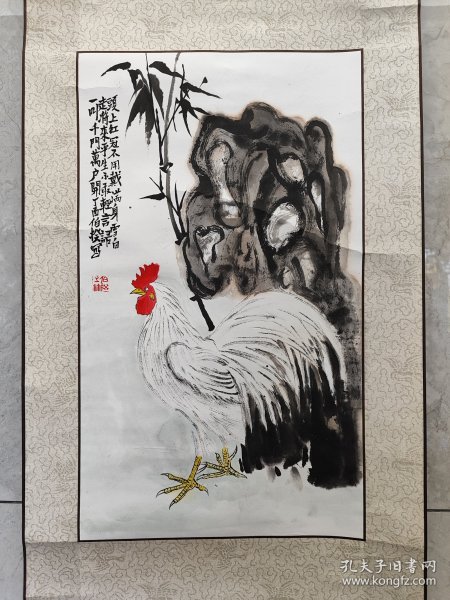 頭上紅冠不用裁滿身雪白
走將來平生不敢輕言語
一叫千門萬户開丁酉伯寫
孔夫子旧书网
www.kongfz.com